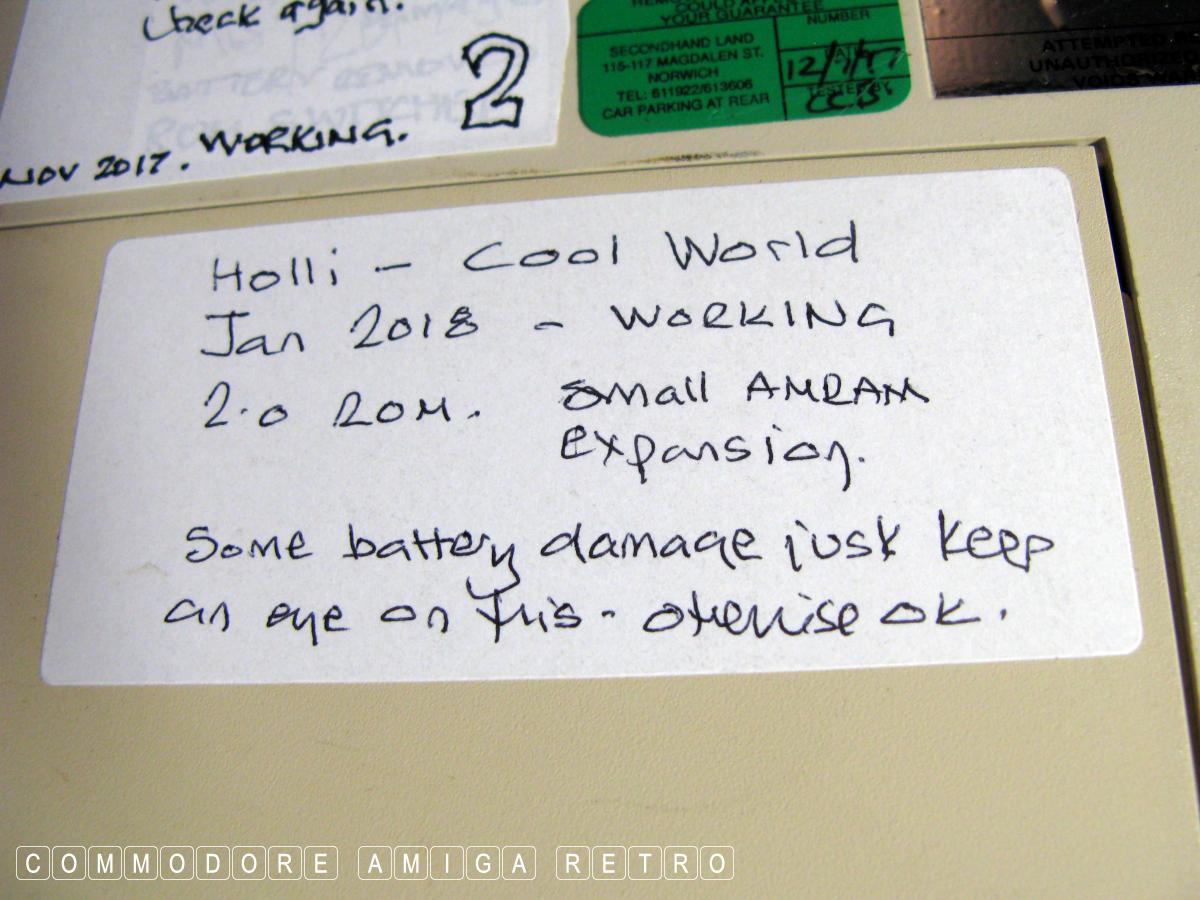 Check again.
2
NOV 2017. WORKING.
YOUR GUARANTEE
NUMBER
SECONDHAND LAND
115-117 MAGDALEN ST.
NORWICH
TEL: 611922/613606
CAR PARKING AT REAR
DATE
TESTED BY
ATTEMPTED
UNAUTHORIZED
VOIDS WAR
Holli - Cool World
Jan 2018 - WORKING
2.0 ROM. Small AMRAM
expansion.
Some battery damage just keep
an eye on this - otherwise ok.
COMMODORE AMIGA RETRO